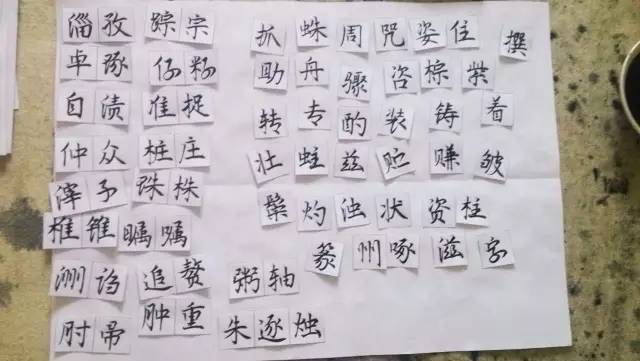 淄孜 踪宗 抓蛛周咒姿住 撰
卓琢 仔籽 助舟骤咨棕柴
自渍 准捉 转专酌装铸着
仲众 桩庄 壮蛀兹贮赚皱
滓予 珠株 灼浊状资柱
椎锥瞩嘱 篆州啄滋字
洲诌 追赘 粥轴
肘帚 肿重 朱逐烛